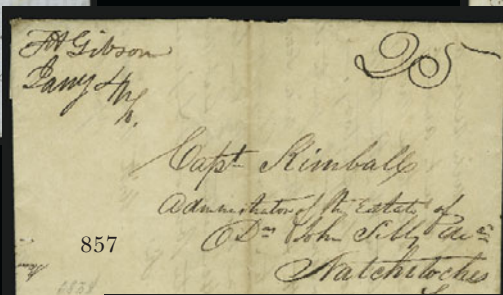 Ft Gibson
Jany 4th
25
Capt Kimball
Administrator of the Estate of
Dr John
Natchitoches
857